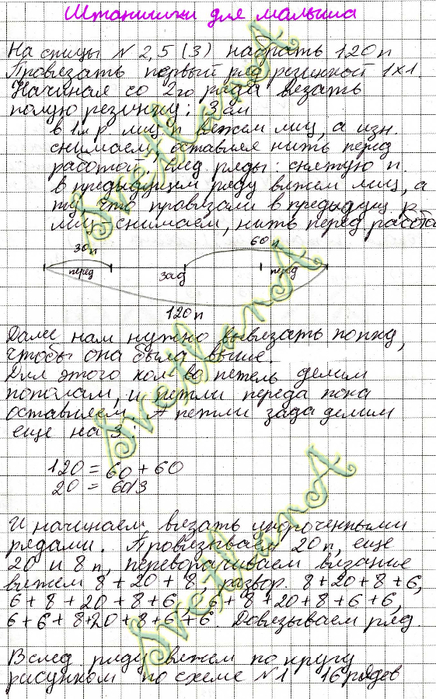 Штанишки для малыша
На спицы N 2,5 (3) набрать 120 п
Провязать первый ряд резинкой 1х1.
Начиная со 2го ряда вязать
полую резинку: 3 см
в 1м р лиц п вяжем лиц, а изн.
снимаем, оставляя нить перед
работой, след ряды: снятую п.
в предыдущем ряду вяжем лиц, а
ту, что провязали в предыдущ р.
лиц - снимаем, нить перед работа
30п 60 п
перед зад перед
120 п
Далее нам нужно вывязать попку,
чтобы она была выше.
Для этого кол во петель делим
пополам, и петли переда пока
оставляем. А петли зада делим
еще на 3:
120 = 60 + 60
20 = 60/3
И начинаем вязать укороченными
рядами. Провязываем 20 п, еще
20 и 8 п, переворачиваем вязание
вяжем 8 + 20 + 8, развор. 8 + 20 + 8 + 6,
6 + 8 + 20 + 8 + 6, 6 + 8 + 20 + 8 + 6 + 6,
6 + 6 + 8 + 20 + 8 + 6 + 6. Довязываем ряд
В след ряду вяжем по кругу
рисунком по схеме N 1 16 рядов
SvetlanA
SvetlanA
SvetlanA